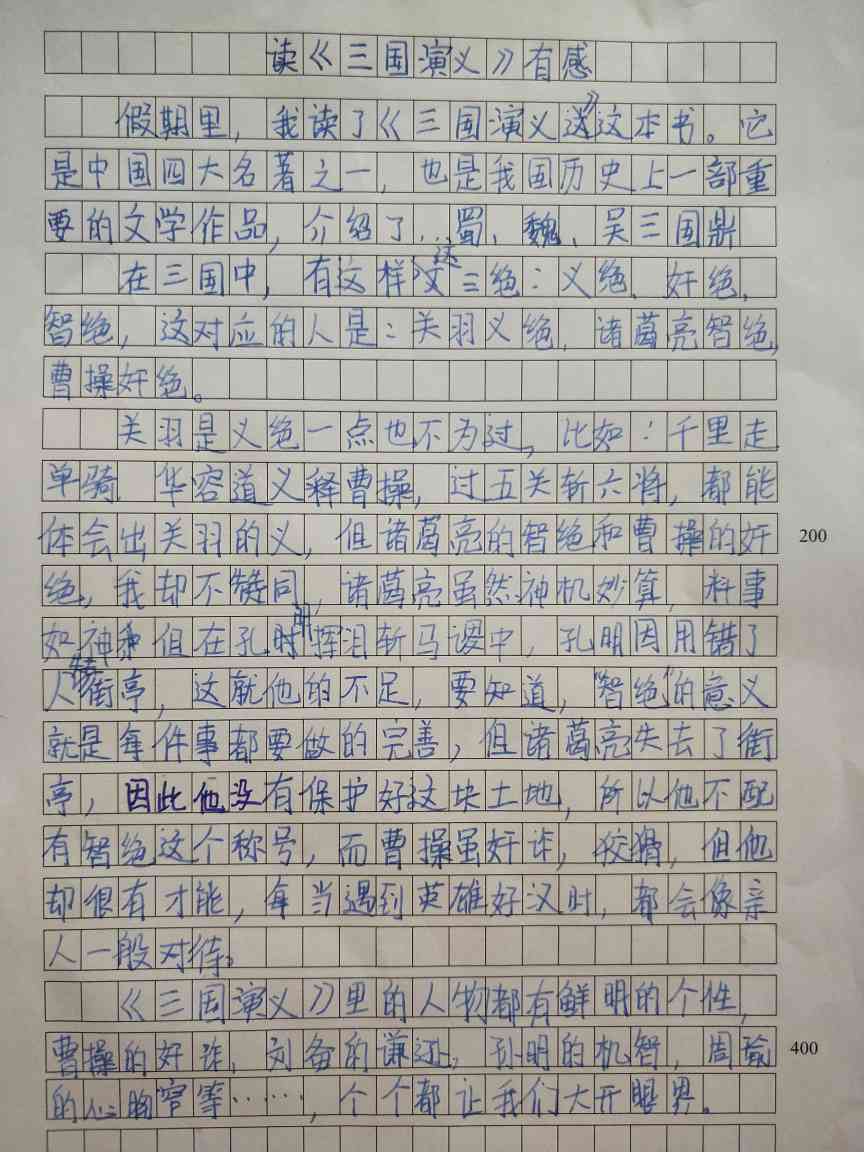 读《三国演义》有感
假期里，我读了《三国演义》这本书。它
是中国四大名著之一，也是我国历史上一部重
要的文学作品，介绍了…蜀、魏、吴三国鼎
在三国中，有这样这三绝：义绝、奸绝、
智绝，这对应的人是：关羽义绝，诸葛亮智绝，
曹操奸绝。
关羽是义绝一点也不为过，比如：千里走
单骑、华容道义释曹操，过五关斩六将，都能
体会出关羽的义，但诸葛亮的智绝和曹操的奸
绝，我却不赞同，诸葛亮虽然神机妙算，料事
如神，但在孔明挥泪斩马谡中，孔明因用错了
人 街亭，这就他的不足，要知道，“智绝”的意义
就是每件事都要做的完善，但诸葛亮失去了街
亭，因此他没有保护好这块土地，所以他不配
有智绝这个称号，而曹操虽奸诈，狡猾，但他
却很有才能，每当遇到英雄好汉时，都会像亲
人一般对待。
《三国演义》里的人物都有鲜明的个性，
曹操的奸诈，刘备的谦逊，孔明的机智，周瑜
的心胸窄等……，个个都让我们大开眼界。
200
400